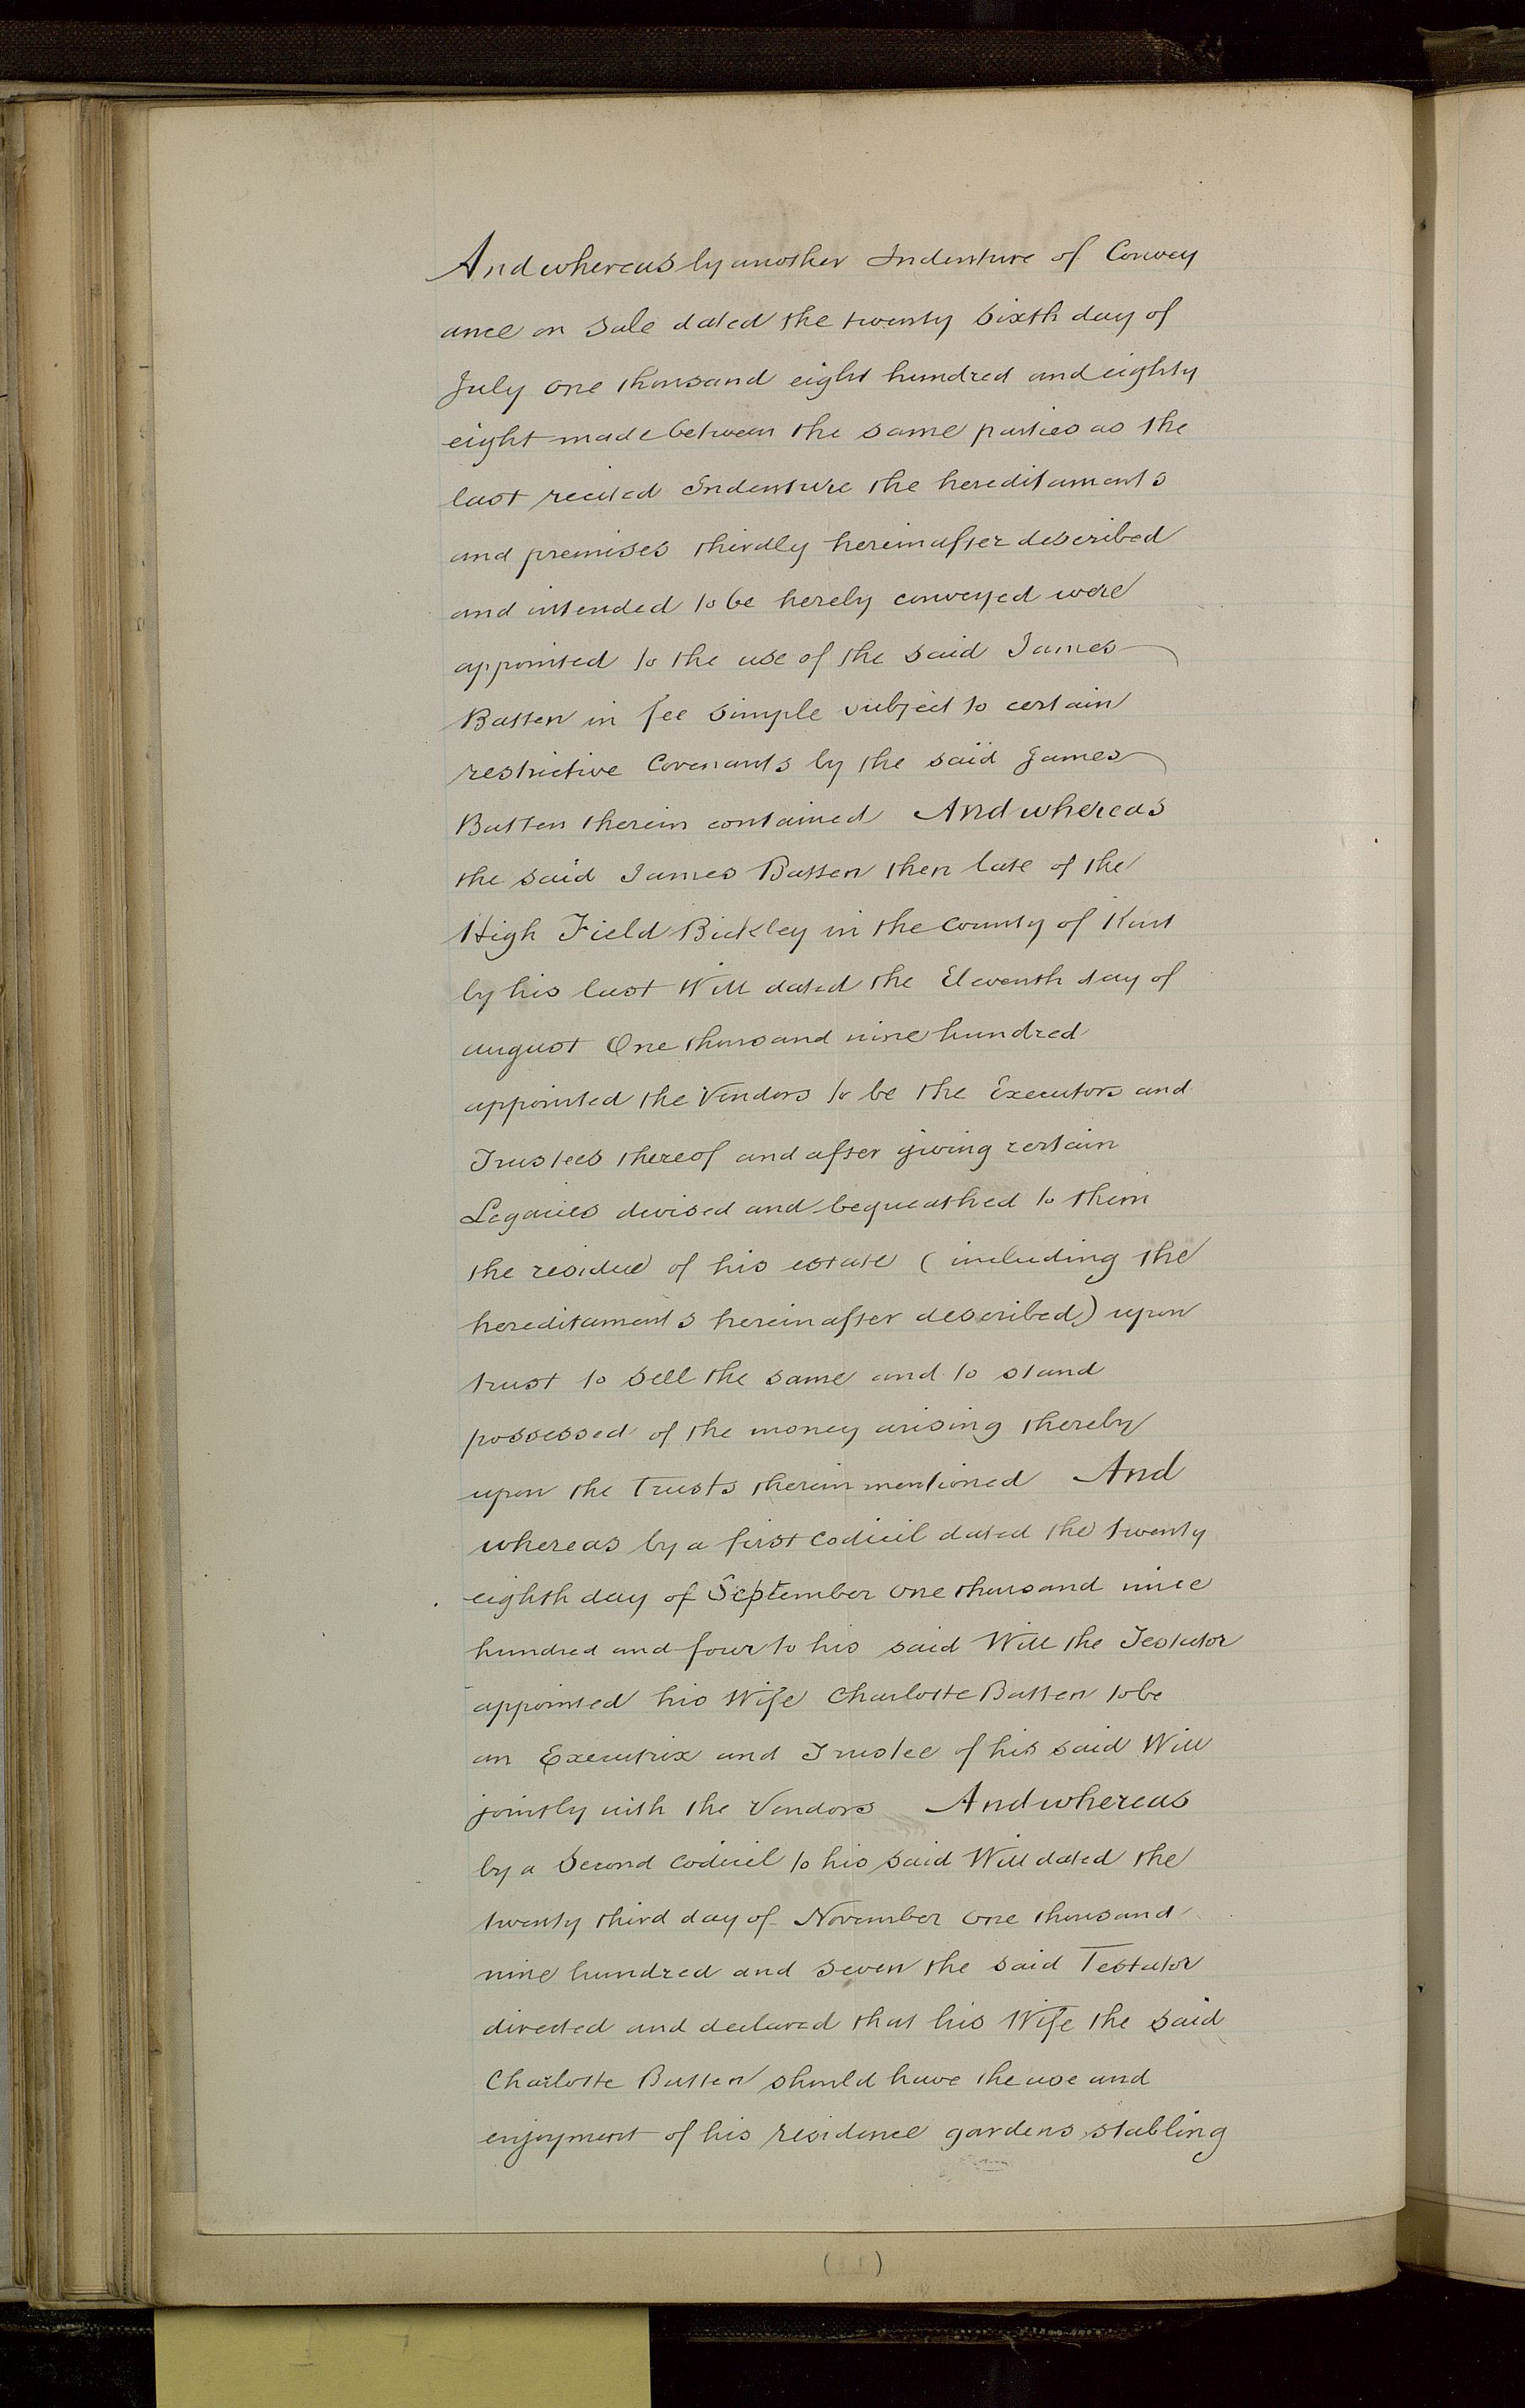 And whereas by another Indenture of Convey
ance on Sale dated the twenty Sixth day of
July one thousand eight hundred and eighty
eight made between the same parties as the
last recited Indenture the hereditaments
and premises thirdly hereinafter described
and intended to be hereby conveyed were
appointed to the use of the said James
Batten in fee simple subject to certain
restrictive Covenants by the said James
Batten therein contained And whereas
the said James Batten then late of the
High Field Bickley in the County of Kent
by his last Will dated the Eleventh day of
august One thousand nine hundred
appointed the Vendors to be the Executors and
Trustees thereof and after giving certain
Legacies devised and bequeathed to them
the residue of his estate (including the
hereditaments hereinafter described) upon
trust to sell the same and to stand
possessed of the money arising thereby
upon the Trusts therein mentioned And
whereas by a first codicil dated the twenty
eighth day of September one thousand nine
hundred and four to his said Will the Testator
appointed his Wife Charlotte Batten to be
an Executrix and Trustee of his said Will
jointly with the Vendors And whereas
by a Second Codicil to his said Will dated the
twenty third day of November one thousand
nine hundred and seven the said Testator
directed and declared that his Wife the said
Charlotte Batten should have the use and
enjoyment of his residence gardens stabling